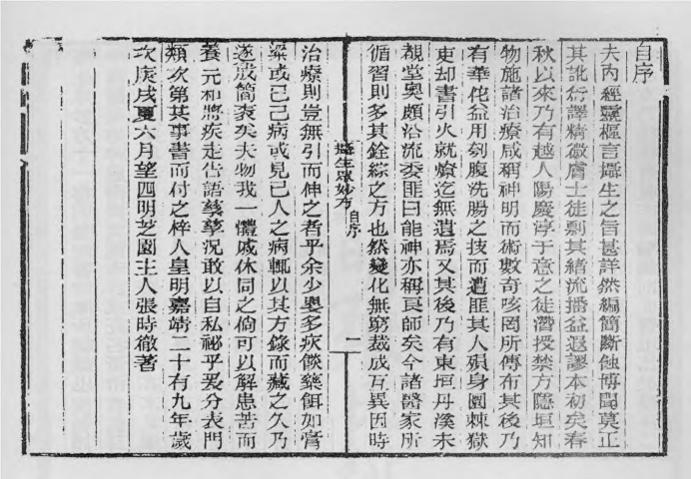 自序
夫內經靈樞言攝生之旨甚詳然編簡斷蝕博聞莫正
其訛衍譯精微膚士徒剽其緒流播益遐謬本初矣春
秋以來乃有越人陽慶淳于意之徒潛授禁方隱垣知
物施諸治療咸稱神明而術數奇咳罔所傳布其後乃
有華佗益用刳腹洗腸之技而遭匪其人殞身圜棘獄
吏却書引火就燌迄無遺焉又其後乃有東垣丹溪未
覩堂奧頗沿流委匪曰能神亦稱良師矣今諸醫家所
循習則多其銓綜之方也然變化無窮裁成互異因時
攝生眾妙方 自序 一
治療則豈無引而伸之者乎余少嬰多疾餤藥餌如膏
粱或己己病或見已人之病輒以其方錄而藏之久乃
遂成簡袠矣夫物我一體戚休同之倘可以解患苦而
養元和將疾走告語孳孳況敢以自私祕乎爰分表門
類次第其事書而付之梓人皇明嘉靖二十有九年歲
次庚戌夏六月望四明芝園主人張時徹著